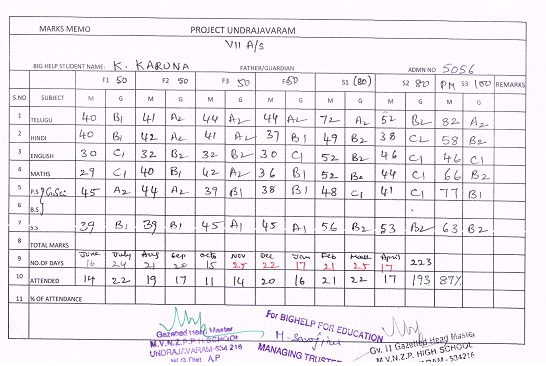 MARKS MEMO PROJECT UNDRAJAVARAM
VII A/s
BIG HELP STUDENT NAME: K. KARUNA FATHER/GUARDIAN ADMN NO 5056
F1 50 F2 50 F3 50 F4 50 S1 (80) S2 80 PM S3 100 REMARKS
S.NO SUBJECT M G M G M G M G M G M G M G
1 TELUGU 40 B1 41 A2 44 A2 44 A2 72 A2 52 B2 82 A2
2 HINDI 40 B1 42 A2 41 A2 37 B1 49 B2 38 C2 58 B2
3 ENGLISH 30 C1 32 B2 32 B2 30 C1 52 B2 46 C1 46 C1
4 MATHS 29 C1 40 B1 42 A2 36 B1 52 B2 44 C1 66 B2
5 P.S G.Sci 45 A2 44 A2 39 B1 38 B1 48 C1 41 C1 77 B1
6 B.S
7 S.S 39 B1 39 B1 45 A1 45 A1 56 B2 53 B2 63 B2
8 TOTAL MARKS
June July Aug Sep Oct Nov Dec Jan Feb March April
9 NO.OF DAYS 16 24 21 20 15 25 22 17 21 25 17 223
10 ATTENDED 14 22 19 17 11 14 20 16 21 22 17 193 87%
11 % OF ATTENDANCE
For BIGHELP FOR EDUCATION
Gazetted Head Master
M.V.N.Z.P.P HIGH SCHOOL
UNDRAJAVARAM-534 216
W.G.Dist. A.P
MANAGING TRUSTEE
Gv. II Gazetted Head Master
M.V.N.Z.P. HIGH SCHOOL
534216